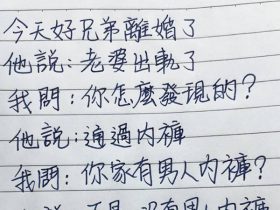 今天好兄弟離婚了
他說：老婆出軌了
我問：你怎麼發現的？
他說：通過內褲
我問：你家有男人內褲？